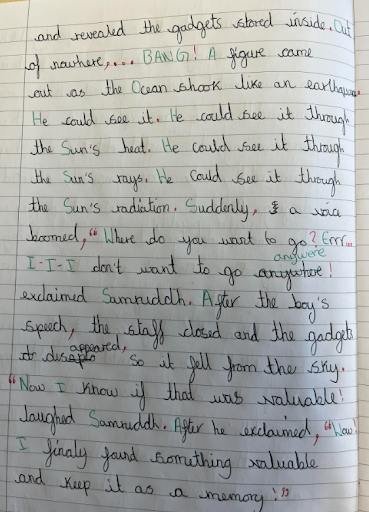 and revealed the gadgets stored inside. Out
of nowhere,... BANG! A figure came
out as the Ocean shook like an earthquake.
He could see it. He could see it through
the Sun's heat. He could see it through
the Sun's rays. He Could see it through
the Sun's radiation. Suddenly, a voice
boomed, "Where do you want to go? Errr...
anywere
I-I-I don't want to go anywhere!
exclaimed Samruddh. After the boy's
speech, the staff closed and the gadgets
appeared,
So it fell from the sky.
"Now I know if that was valuable!
laughed Samruddh. After he exclaimed, "Wow!
I finaly found something valuable
and keep it as a memory!"